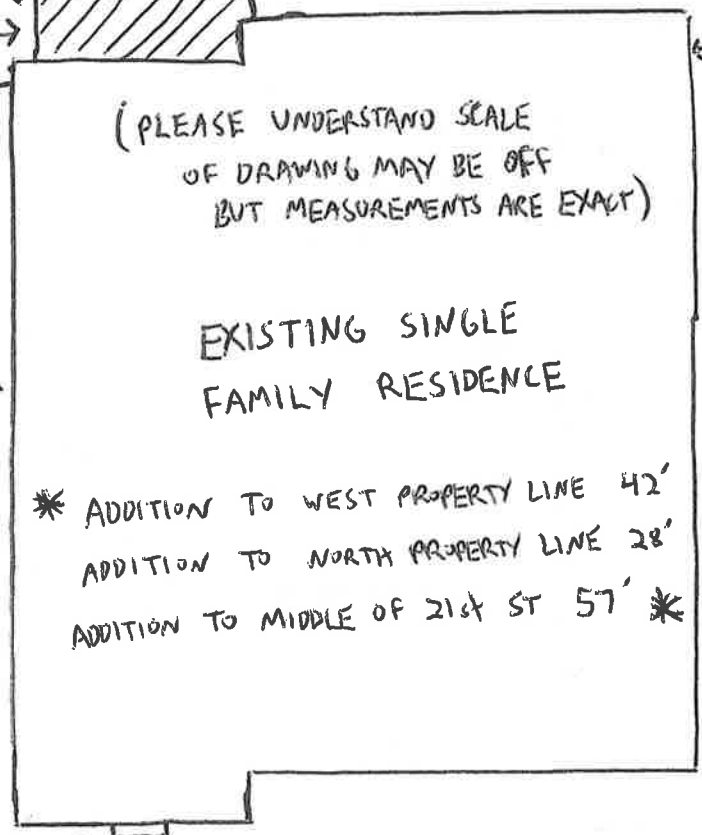 (PLEASE UNDERSTAND SCALE
OF DRAWING MAY BE OFF
BUT MEASUREMENTS ARE EXACT)
EXISTING SINGLE
FAMILY RESIDENCE
* ADDITION TO WEST PROPERTY LINE 42'
ADDITION TO NORTH PROPERTY LINE 28'
ADDITION TO MIDDLE OF 21st ST 57' *